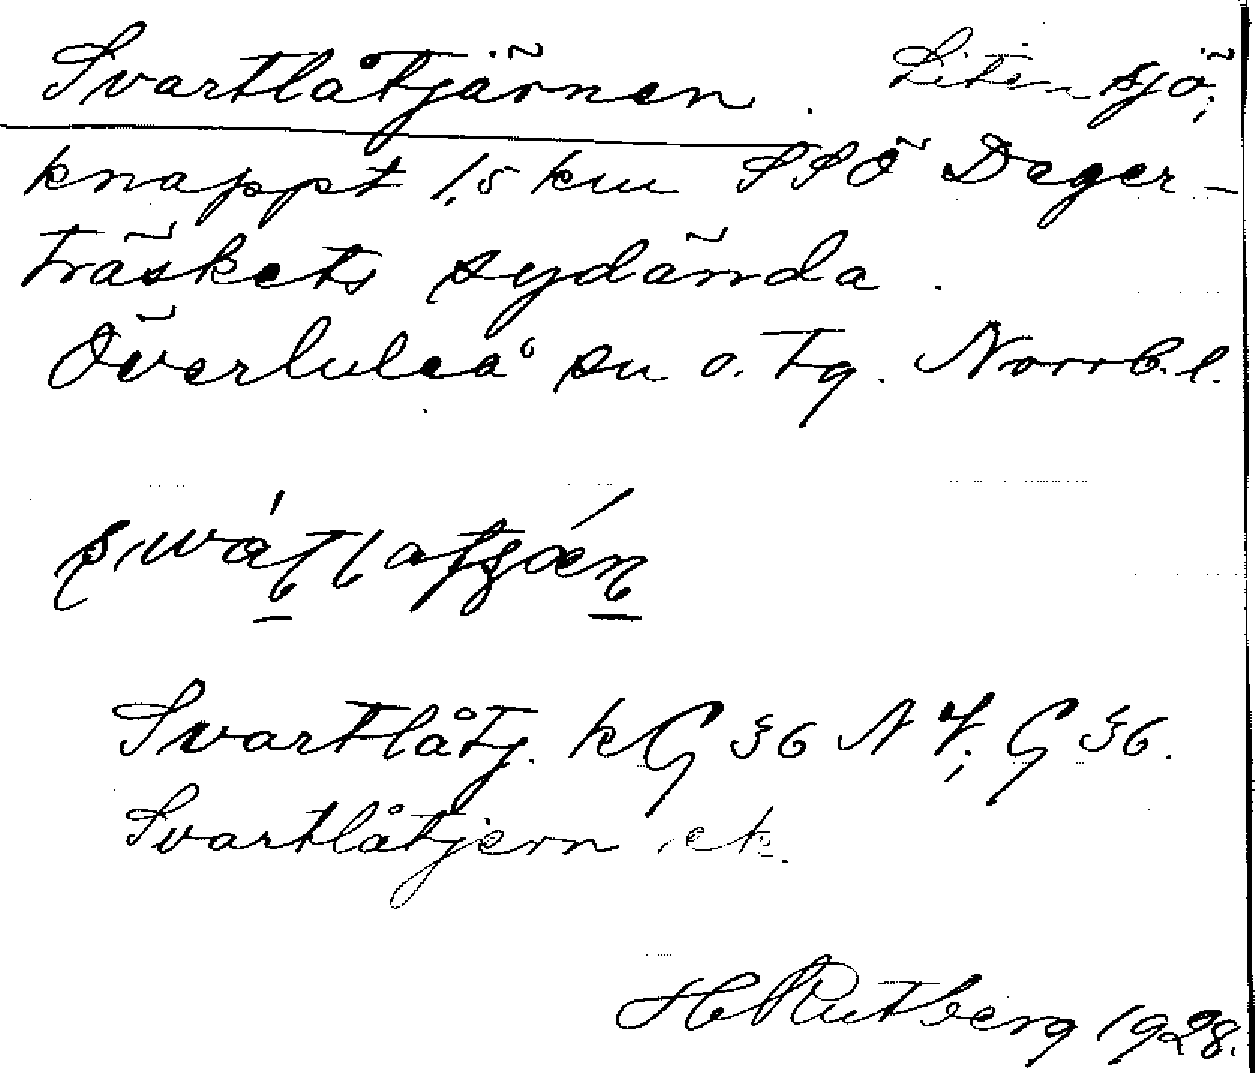 Svartlåtjärnen. Liten sjö,
knappt 1,5 km SSÖ Deger-
träskets sydända.
Överluleå sn o. tg. Norrb. l.
Svartlåtj. kG 36 NV; G 36.
Svartlåtjern ek.
H Rutberg 1928.